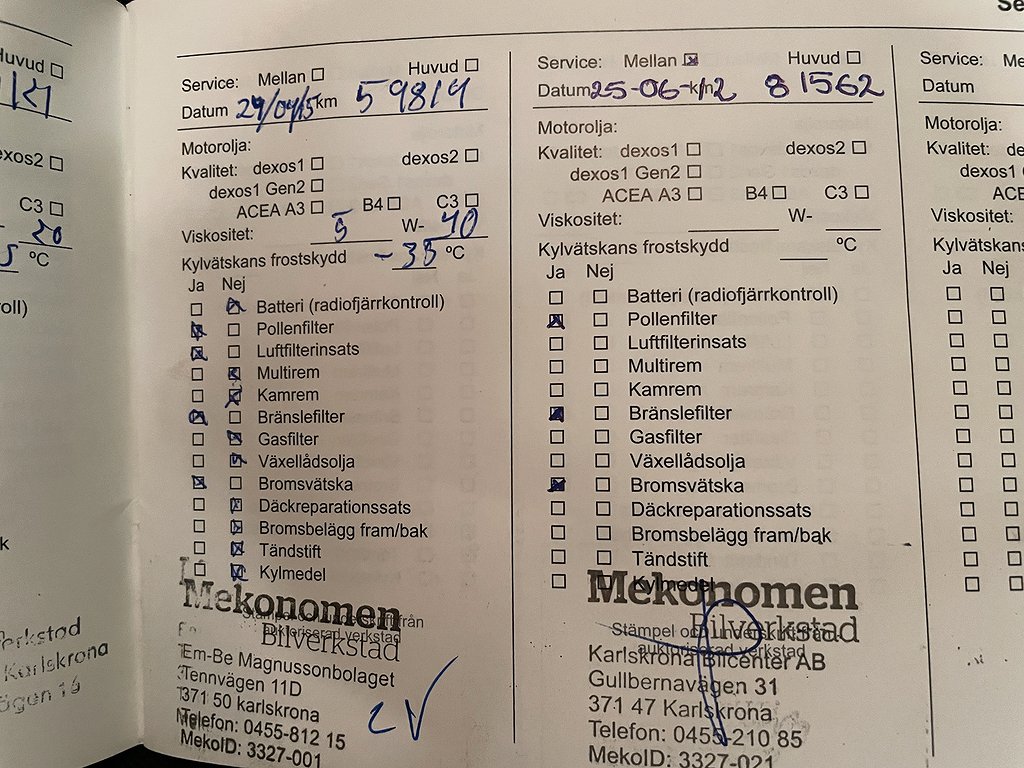 Se
Huvud
dexos2
C3
20
°C
Karlskrona
Service: Mellan Huvud
Datum km 59819
Motorolja:
Kvalitet: dexos1 dexos2
dexos1 Gen2
ACEA A3 B4 C3
Viskositet: 5 W- 40
Kylvätskans frostskydd -35 °C
Ja Nej
Batteri (radiofjärrkontroll)
Pollenfilter
Luftfilterinsats
Multirem
Kamrem
Bränslefilter
Gasfilter
Växellådsolja
Bromsvätska
Däckreparationssats
Bromsbelägg fram/bak
Tändstift
Kylmedel
Mekonomen
Stämpel och underskrift från
Bilverkstad
auktoriserad verkstad
Em-Be Magnussonbolaget
Tennvägen 11D
371 50 karlskrona
Telefon: 0455-812 15
MekoID: 3327-001
Service: Mellan Huvud
Datum 25-06-12 km 81562
Motorolja:
Kvalitet: dexos1 dexos2
dexos1 Gen2
ACEA A3 B4 C3
Viskositet: W-
Kylvätskans frostskydd °C
Ja Nej
Batteri (radiofjärrkontroll)
Pollenfilter
Luftfilterinsats
Multirem
Kamrem
Bränslefilter
Gasfilter
Växellådsolja
Bromsvätska
Däckreparationssats
Bromsbelägg fram/bak
Tändstift
Kylmedel
Mekonomen
Bilverkstad
Stämpel och underskrift från
auktoriserad verkstad
Karlskrona Bilcenter AB
Gullbernavägen 31
371 47 Karlskrona
Telefon: 0455-210 85
MekoID: 3327-021
Service: Me
Datum
Motorolja:
Kvalitet: de
de
ACE
Viskositet:
Kylvätskans
Ja Nej